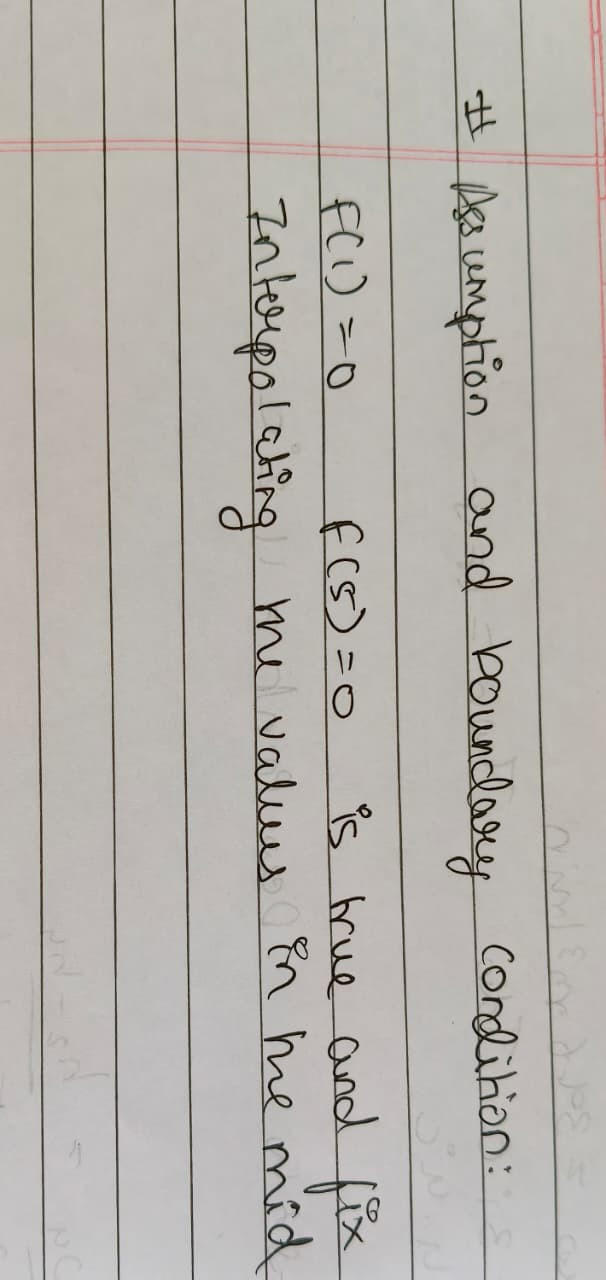 # Assumption and boundary condition:
f(1) = 0 f(5) = 0 is true and fix
Interpolating the values in the mid